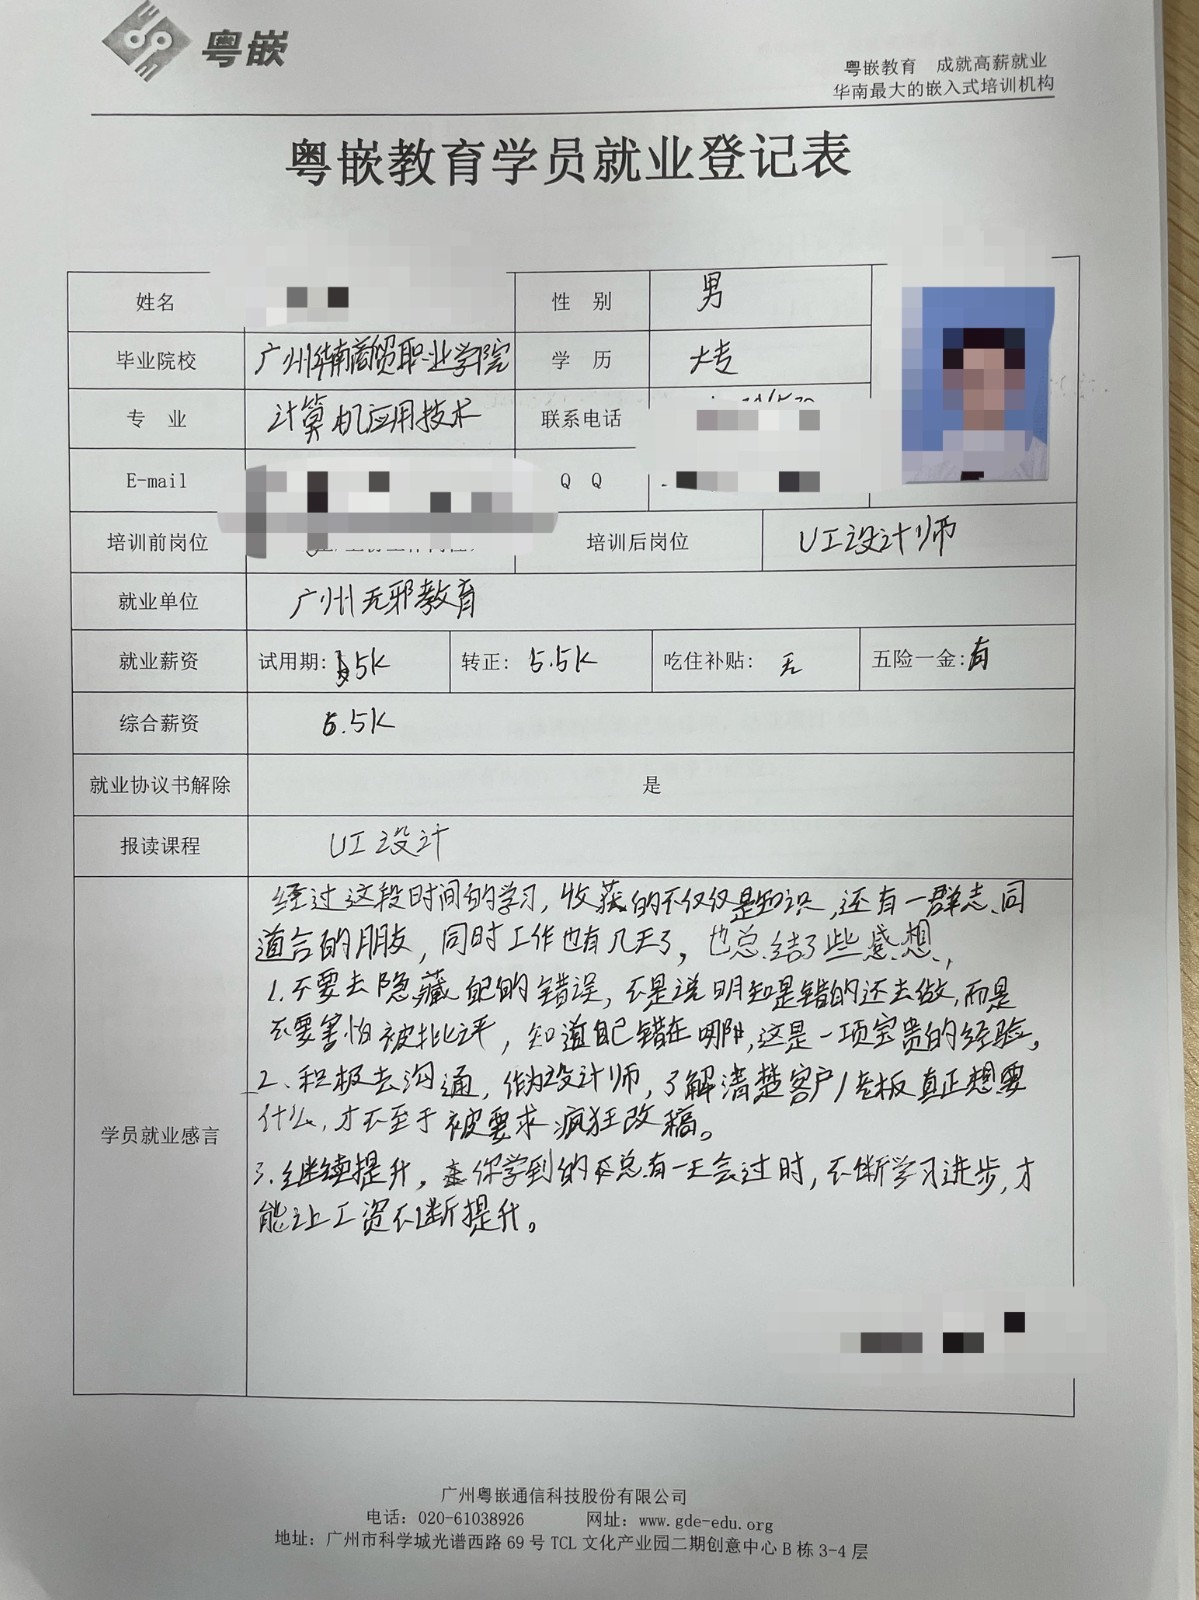 粤嵌
粤嵌教育 成就高薪就业
华南最大的嵌入式培训机构
粤嵌教育学员就业登记表
姓名 性 别 男
毕业院校 广州华南商贸职业学院 学 历 大专
专 业 计算机应用技术 联系电话
E-mail Q Q
培训前岗位 培训后岗位 UI设计师
就业单位 广州无邪教育
就业薪资 试用期: 5K 转正: 5.5K 吃住补贴: 无 五险一金: 有
综合薪资 5.5K
就业协议书解除 是
报读课程 UI设计
学员就业感言
经过这段时间的学习,收获的不仅仅是知识,还有一群志同
道合的朋友,同时工作也有几天了,也总结了些感想,
1.不要去隐藏自己的错误,不是说明知是错的还去做,而是
不要害怕被批评,知道自己错在哪里,这是一项宝贵的经验。
2、积极去沟通,作为设计师,了解清楚客户/老板真正想要
什么,才不至于被要求疯狂改稿。
3.继续提升,你学到的总有一天会过时,不断学习进步,才
能让工资不断提升。
广州粤嵌通信科技股份有限公司
电话: 020-61038926 网址: www.gde-edu.org
地址: 广州市科学城光谱西路 69 号 TCL 文化产业园二期创意中心 B 栋 3-4 层